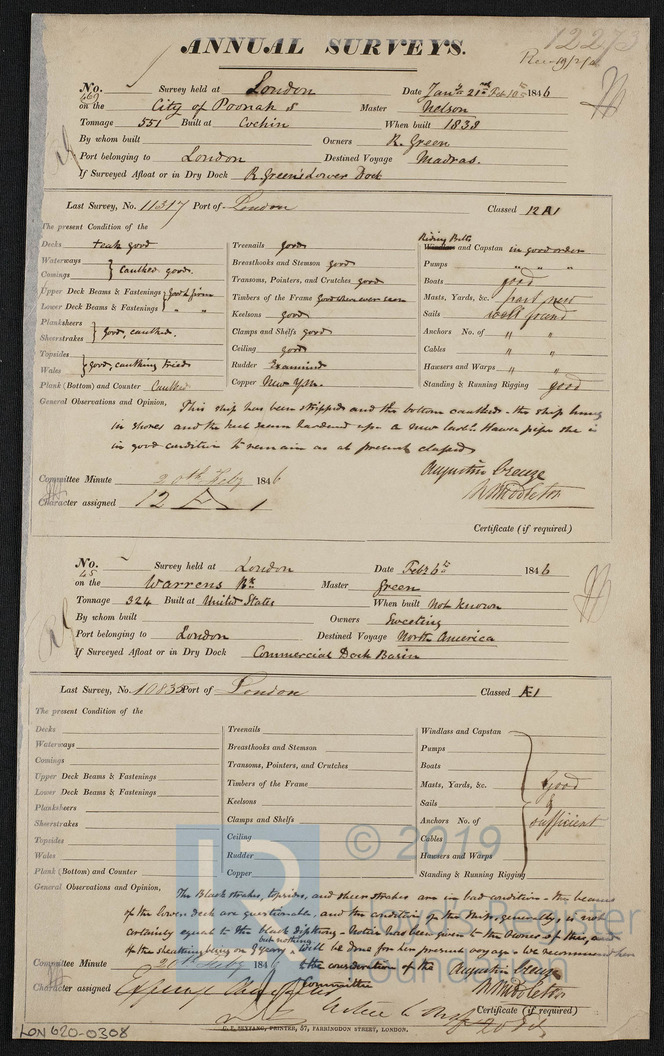 12273
ANNUAL SURVEYS.
Rec 19/2/46
No. 669 Survey held at London Date Jany 21st Feb 10th 1846
on the City of Poonah S Master Nelson
Tonnage 551 Built at Cochin When built 1838
By whom built Owners R. Green
Port belonging to London Destined Voyage Madras.
If Surveyed Afloat or in Dry Dock R Green's Lower Dock
Last Survey, No. 11317 Port of London Classed 12 A 1
The present Condition of the
Decks teak good
Waterways
Comings } caulked good.
Upper Deck Beams & Fastenings } Good & firm
Lower Deck Beams & Fastenings } " "
Planksheers
Sheerstrakes } good, caulked.
Topsides
Wales } good, caulking tried
Plank (Bottom) and Counter Caulked
Treenails good
Breasthooks and Stemson good
Transoms, Pointers, and Crutches good
Timbers of the Frame Good where seen
Keelsons good
Clamps and Shelfs good
Ceiling good
Rudder Examined
Copper New Y.M.
Riding Bitts
Windlass and Capstan in good order
Pumps " " "
Boats good
Masts, Yards, &c. part new
Sails well found
Anchors No. of " "
Cables " "
Hawsers and Warps " "
Standing & Running Rigging good
General Observations and Opinion, This ship has been stripped and the bottom caulked - the ship being
in shores and the keel seams hardened up - a new larbd. Hawse pipe she is
in good condition to remain as at present classed
Augustin Creuze
W Middleton
Committee Minute 20th Feby 1846
Character assigned 12 A 1
Certificate (if required)
No. 45 Survey held at London Date Feby 6th 1846
on the Warrens Bk Master Green
Tonnage 324 Built at United States When built Not known
By whom built Owners Sweeting
Port belonging to London Destined Voyage North America
If Surveyed Afloat or in Dry Dock Commercial Dock Basin
Last Survey, No. 10832 Port of London Classed Æ1
The present Condition of the
Decks
Waterways
Comings
Upper Deck Beams & Fastenings
Lower Deck Beams & Fastenings
Planksheers
Sheerstrakes
Topsides
Wales
Plank (Bottom) and Counter
Treenails
Breasthooks and Stemson
Transoms, Pointers, and Crutches
Timbers of the Frame
Keelsons
Clamps and Shelfs
Ceiling
Rudder
Copper
Windlass and Capstan
Pumps
Boats
Masts, Yards, &c. good
Sails &
Anchors No. of sufficient
Cables
Hawsers and Warps
Standing & Running Rigging
General Observations and Opinion, The Black strakes, topsides, and sheerstrakes are in bad condition - the beams
of the lower deck are questionable, and the condition of the Ship, generally, is not
certainly equal to the black diphthong - Notice has been given to the Owner of this, and
of the sheathing being on but nothing will be done for her present voyage - We recommend her
to the consideration of the Committee
Augustin Creuze
W Middleton
Committee Minute 20th Feby 1846
Character assigned
Certificate (if required)
C. F. SEYFANG, PRINTER, 57, FARRINGDON STREET, LONDON.
LON 620-0308
© 2019
Lloyd's Register
Foundation